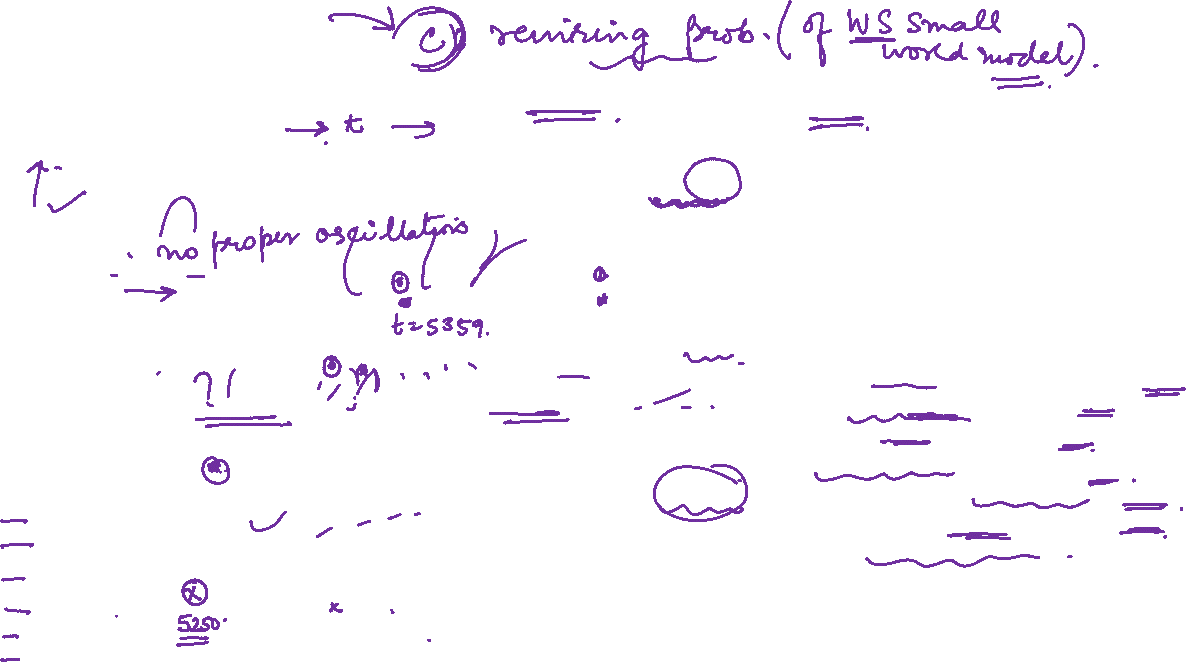 → c rewiring prob. (of WS small
world model).
→ t →
no proper oscillations
t=5359.
??
x
5250.
x